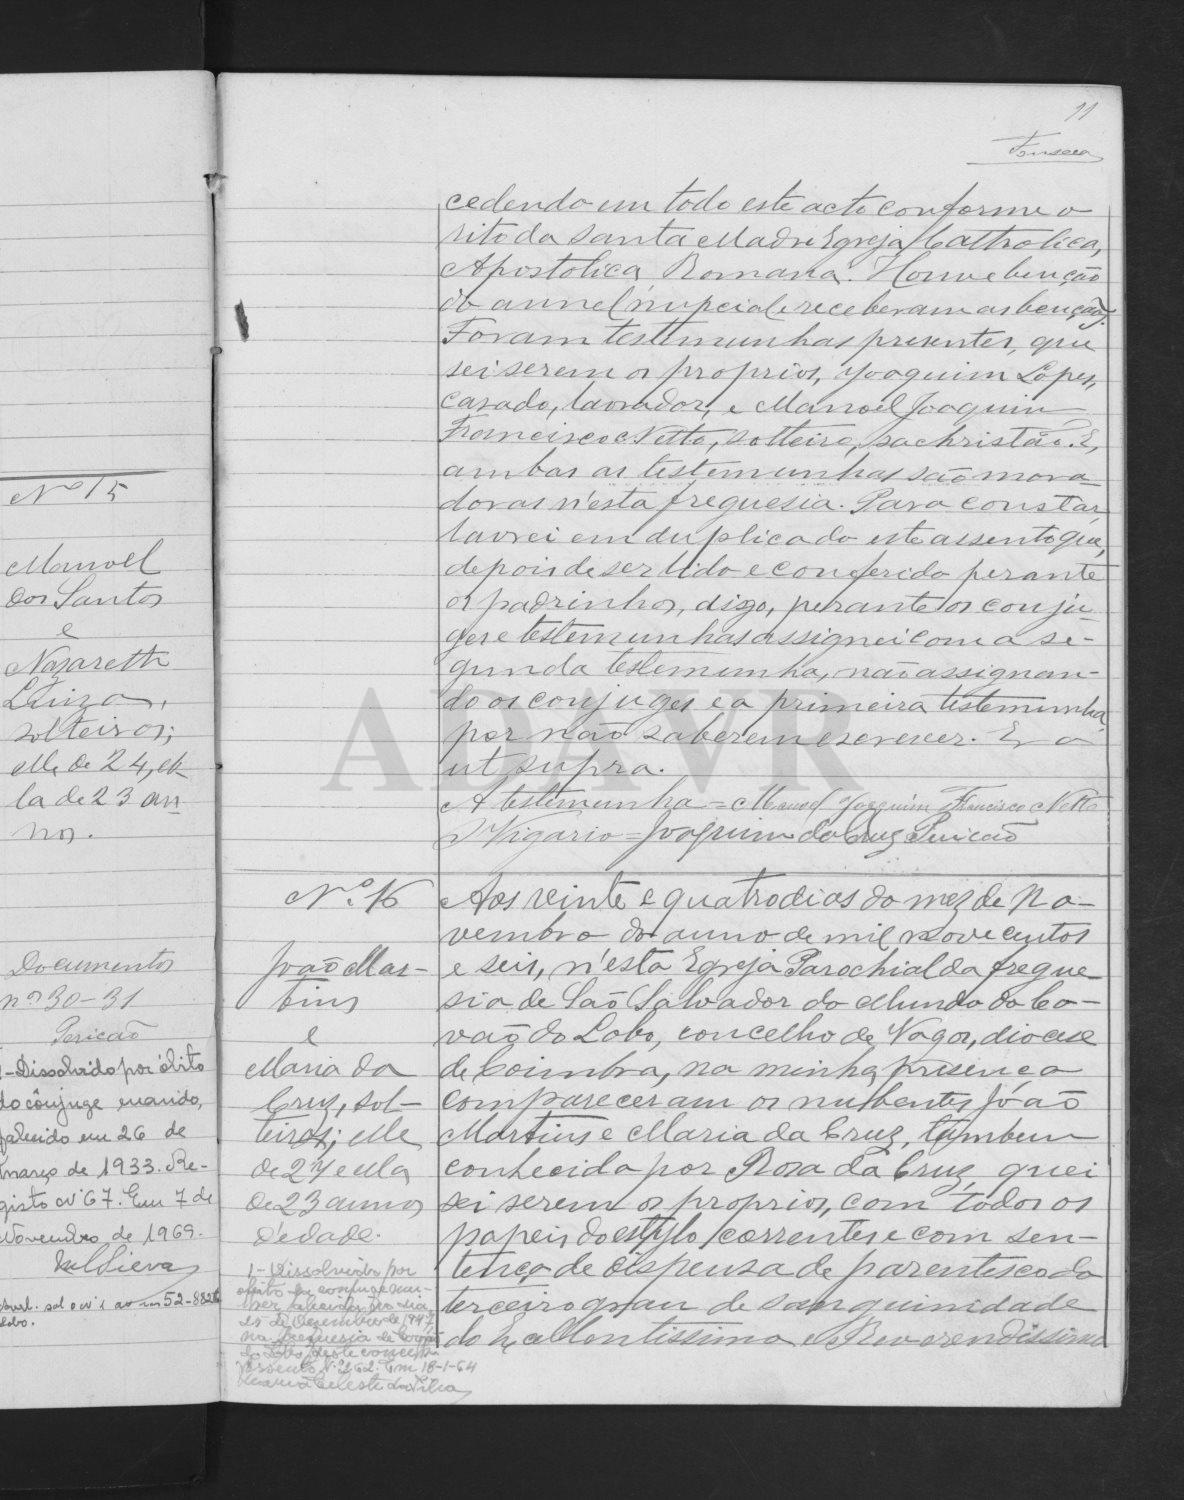 11
Fonseca
Nº 15
Manoel
dos Santos
e
Nazareth
Luiza,
solteiros;
elle de 24, el-
la de 23 an-
nos.
Documentos
nos 30-31
Pericão
1-Dissolvido por óbito
do cônjuge marido,
falecido em 26 de
março de 1933. Re-
gisto nº 67. Em 7 de
Novembro de 1969.
cedendo em todo este acto conforme o
rito da Santa Madre Egreja Catholica,
Apostolica, Romana. Houve benção
do annel nupcial e receberam as bençãos.
Foram testemunhas presentes, que
sei serem os proprios, Joaquim Lopes,
casado, lavrador, e Manoel Joaquim
Francisco Netto, solteiro, sachristão. E,
ambas as testemunhas são mora-
doras n'esta freguesia. Para constar
lavrei em duplicado este assento que,
depois de ser lido e conferido perante
os padrinhos, digo, perante os conju-
ges e testemunhas assignei com a se-
gunda testemunha, não assignan-
do os conjuges e a primeira testemunha,
por não saberem escrever. Era
ut supra.
A testemunha = Manoel Joaquim Francisco Netto
O Vigario = Joaquim da Cruz Pericão
ADAVR
Nº. 16
João Mar-
tins
e
Maria da
Cruz, sol-
teiros; elle
de 27 e ella
de 23 annos
d'edade.
1-Dissolvido por
óbito da conjuge mu-
lher falecida no dia
de Dezembro de 1947
na freguesia de Covão
do Lobo, deste concelho
Assento Nº 262. Em 18-1-64
Maria Celeste da Silva
Aos vinte e quatro dias do mez de No-
vembro do anno de mil nove centos
e seis, n'esta Egreja Parochial da fregue-
sia de São Salvador do Mundo do Co-
vão do Lobo, concelho de Vagos, diocese
de Coimbra, na minha presença
compareceram os nubentes João
Martins e Maria da Cruz, tambem
conhecida por Rosa da Cruz, que
sei serem os proprios, com todos os
papeis do estylo correntes e com sen-
tença de dispensa de parentesco do
terceiro grau de sanguinidade
do Excellentissimo e Reverendissimo